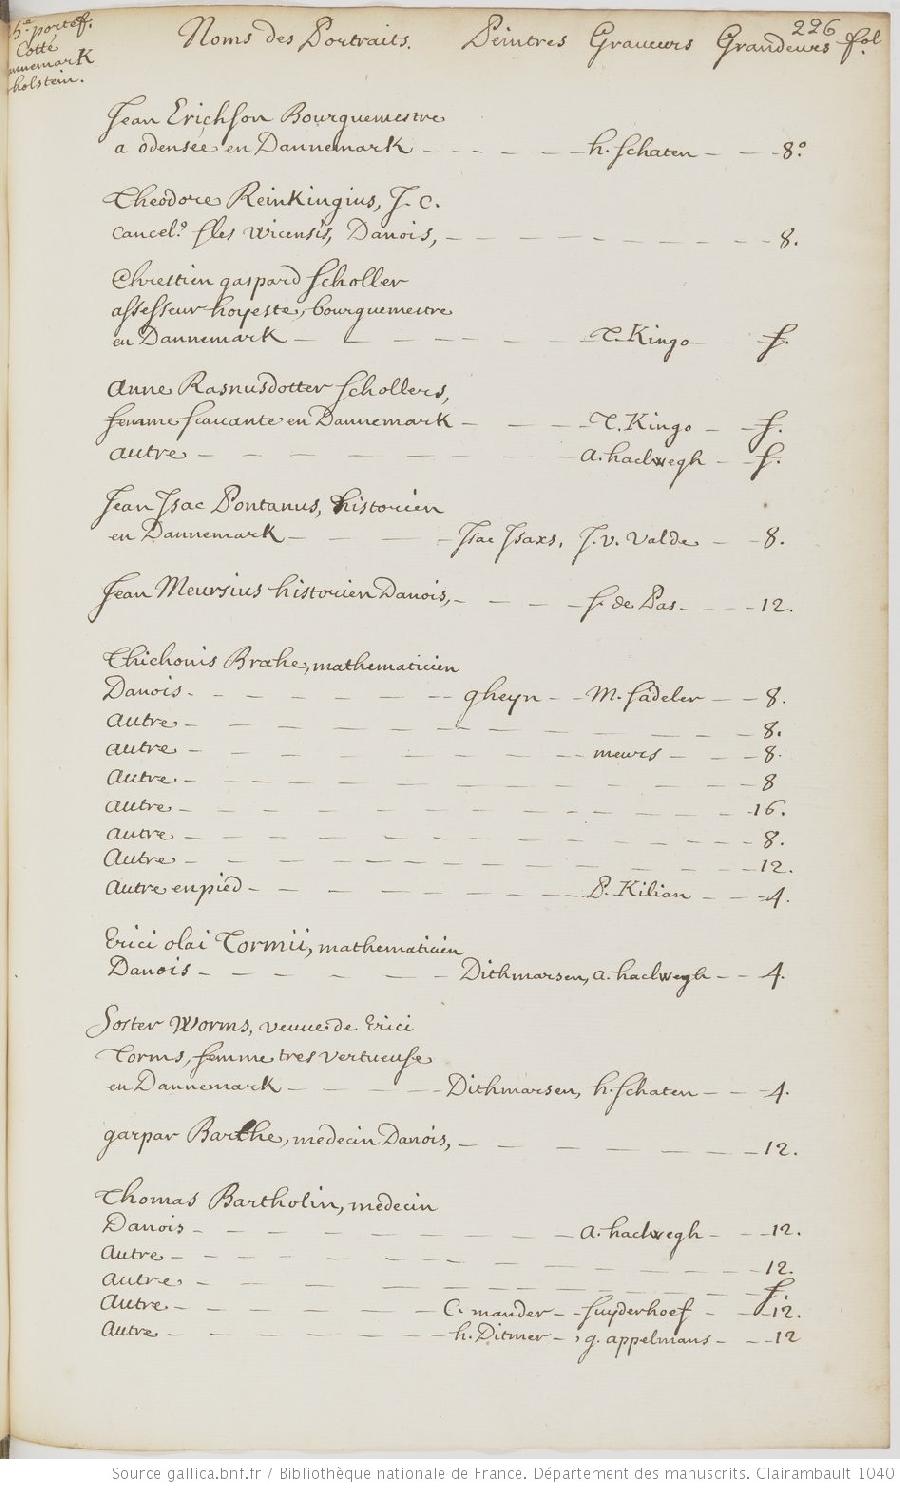 226
h.e portef.
Cotté
annemark
holstein.
Noms des Portraits. Peintres Graveurs Grandeurs fol.
Jean Erichson Bourguemestre
a odensée en Dannemark - - - - - h. schaten - - - 8.o
Theodore Reinkingius, J. C.
cancel.s sles wicensis, Danois, - - - - - - - 8.
Chrestien gaspard scholler
assesseur hoyeste, bourguemestre
en Dannemark - - - - - - T. Kingo - f.
Anne Rasnusdotter schollers,
femme scavante en Dannemark - - - - T. Kingo - - f.
autre - - - - - - - a. haelwegh - - f.
Jean Isac Pontanus, historien
en Dannemark - - - - Isac Isaxs, J. v. Valde - - 8.
Jean Meursius historien Danois, - - - - s. de Pas - - - 12.
Thichonis Brahe, mathematicien
Danois - - - - - - gheyn - - M. sadeler - - 8.
autre - - - - - - - - - - - 8.
autre - - - - - - - meurs - - - 8.
autre - - - - - - - - - - - 8
autre - - - - - - - - - - - 16.
autre - - - - - - - - - - - 8.
autre - - - - - - - - - - - 12.
autre en pied - - - - - - P. Kilian - - - 4.
Erici olai Tormii, mathematicien
Danois - - - - - - Dithmarsen, a. haelwegh - - 4.
Soster Worms, veuve de Erici
Torms, femme tres vertueuse
en Dannemark - - - - Dithmarsen, h. schaten - - - 4.
gaspar Barthe, medecin Danois, - - - - - - 12.
Thomas Bartholin, medecin
Danois - - - - - - - a. haelwegh - - - 12.
autre - - - - - - - - - - - 12.
autre - - - - - - - - - - - f.
autre - - - - - - C. mander - - suyderhoef - - 12.
autre - - - - - - h. Ditmer - , g. appelmans - - - 12
Source gallica.bnf.fr / Bibliothèque nationale de France. Département des manuscrits. Clairambault 1040